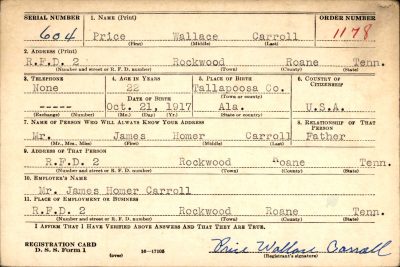 SERIAL NUMBER 1. NAME (Print) ORDER NUMBER
604 Price Wallace Carroll 1178
(First) (Middle) (Last)
2. ADDRESS (Print)
R.F.D. 2 Rockwood Roane Tenn.
(Number and street or R. F. D. number) (Town) (County) (State)
3. TELEPHONE 4. AGE IN YEARS 5. PLACE OF BIRTH 6. COUNTRY OF CITIZENSHIP
None 22 Tallapoosa Co.
DATE OF BIRTH (Town or county)
----- Oct. 21, 1917 Ala. U.S.A.
(Exchange) (Number) (Mo.) (Day) (Yr.) (State or country)
7. NAME OF PERSON WHO WILL ALWAYS KNOW YOUR ADDRESS 8. RELATIONSHIP OF THAT PERSON
Mr. James Homer Carroll Father
(Mr., Mrs., Miss) (First) (Middle) (Last)
9. ADDRESS OF THAT PERSON
R.F.D. 2 Rockwood Roane Tenn.
(Number and street or R. F. D. number) (Town) (County) (State)
10. EMPLOYER'S NAME
Mr. James Homer Carroll
11. PLACE OF EMPLOYMENT OR BUSINESS
R.F.D. 2 Rockwood Roane Tenn.
(Number and street or R. F. D. number) (Town) (County) (State)
I AFFIRM THAT I HAVE VERIFIED ABOVE ANSWERS AND THAT THEY ARE TRUE.
REGISTRATION CARD
D. S. S. Form 1 (over) 16—17105 Price Wallace Carroll
(Registrant's signature)